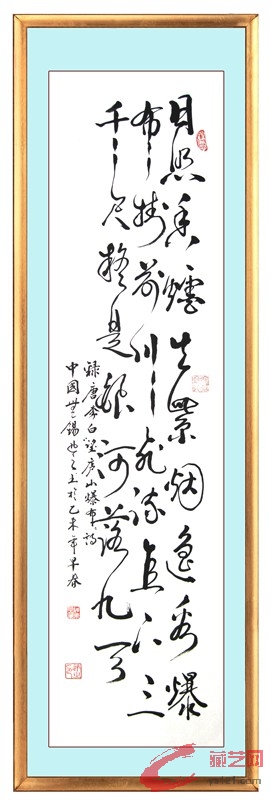 日照香爐生紫烟遥看瀑
布掛前川飛流直下三
千尺疑是銀河落九天
録唐李白望庐山瀑布詩
中國無錫 於乙未年早春
藏艺网